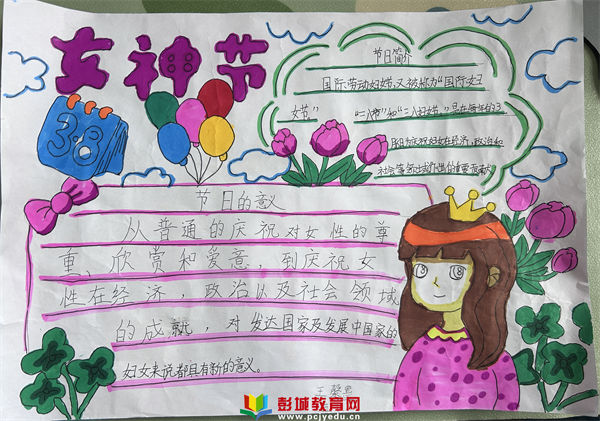 女神节
38
节日简介
国际劳动妇女节,又被称为"国际妇
女节" "三八节"和"三八妇女节"。是在每年的3
月8日为庆祝妇女在经济、政治和
社会等
节日的意义
从普通的庆祝对女性的尊
重、欣赏和爱意,到庆祝女
性在经济,政治以及社会领域
的成就,对发达国家及发展中国家的
妇女来说都具有新的意义。
王
彭城教育网
www.pcjyedu.cn